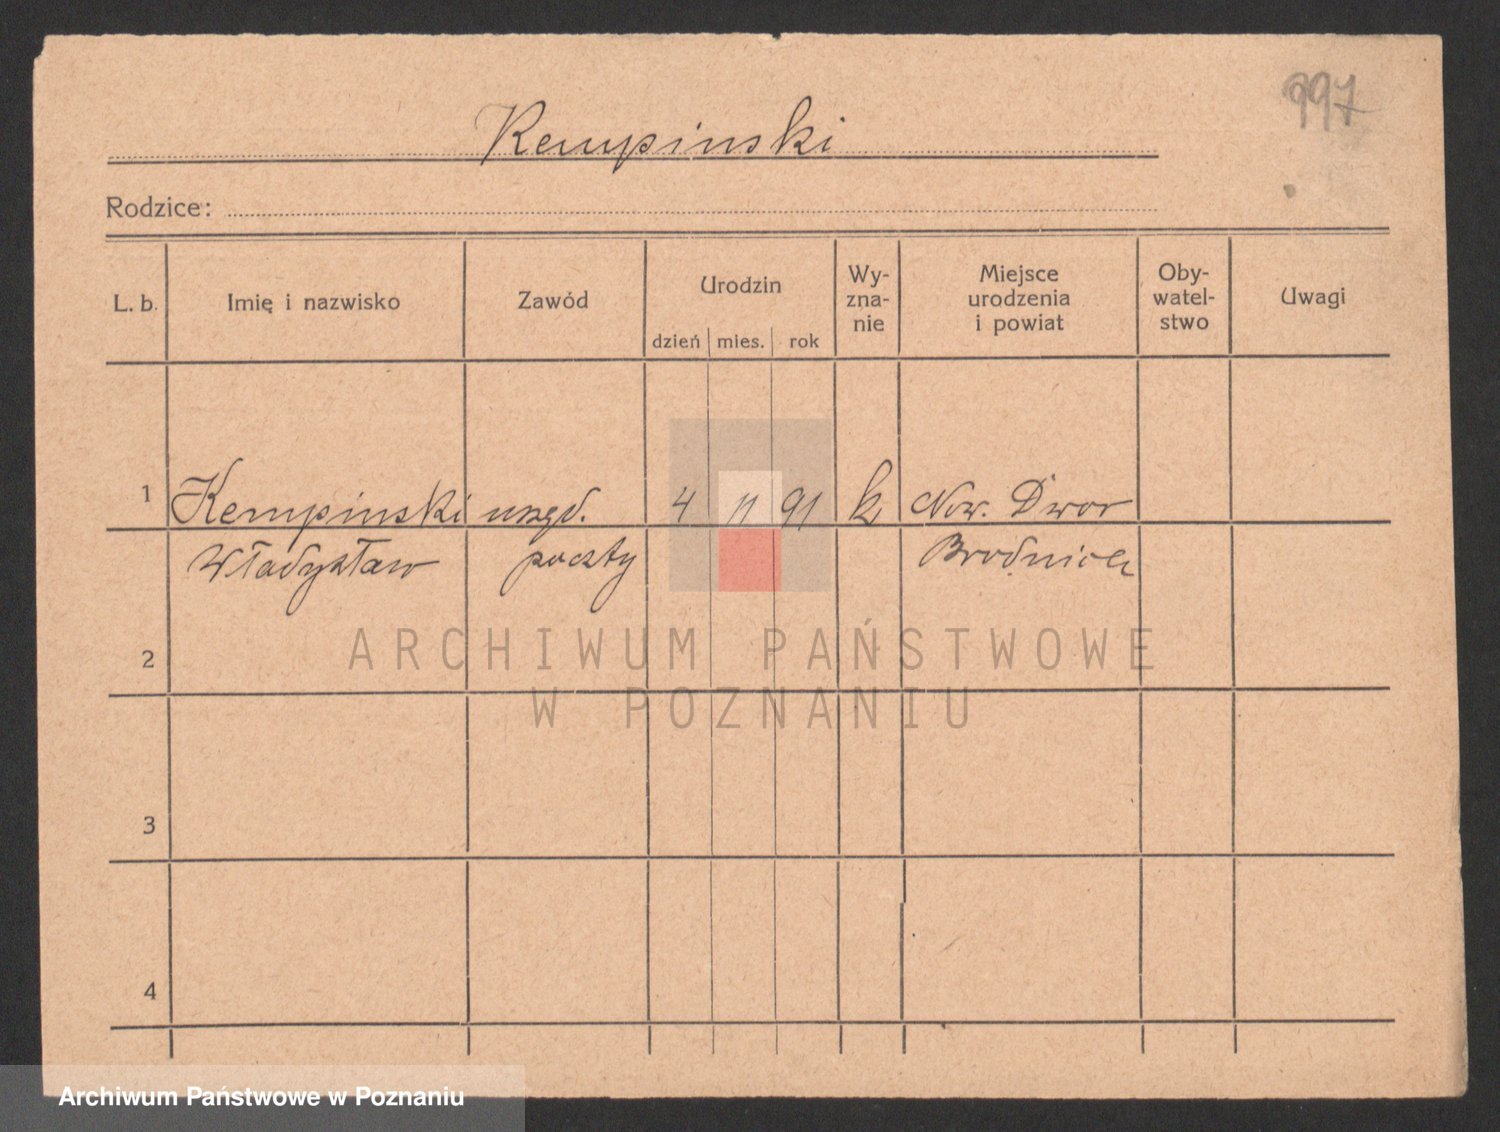 997
Kempinski
Rodzice:
L. b. Imię i nazwisko Zawód Urodzin dzień mies. rok Wy-zna-nie Miejsce urodzenia i powiat Oby-watel-stwo Uwagi
1 Kempinski urzęd. 4 11 91 k Now. Dwor
Władysław poczty Brodnica
2
ARCHIWUM PAŃSTWOWE
W POZNANIU
3
4
Archiwum Państwowe w Poznaniu